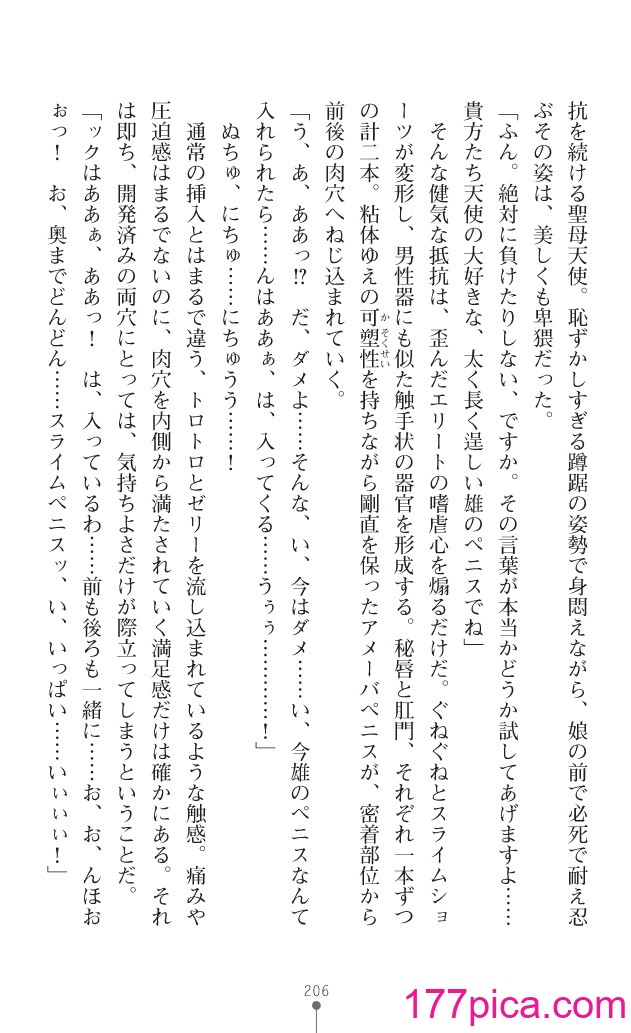 抗を続ける聖母天使。恥ずかしすぎる蹲踞の姿勢で身悶えながら、娘の前で必死で耐え忍
ぶその姿は、美しくも卑猥だった。
「ふん。絶対に負けたりしない、ですか。その言葉が本当かどうか試してあげますよ……
貴方たち天使の大好きな、太く長く逞しい雄のペニスでね」
そんな健気な抵抗は、歪んだエリートの嗜虐心を煽るだけだ。ぐねぐねとスライムショ
ーツが変形し、男性器にも似た触手状の器官を形成する。秘唇と肛門、それぞれ一本ずつ
の計二本。粘体ゆえの可塑性かそくせいを持ちながら剛直を保ったアメーバペニスが、密着部位から
前後の肉穴へねじ込まれていく。
「う、あ、ああっ!?　だ、ダメよ……そんな、い、今はダメ……い、今雄のペニスなんて
入れられたら……んはああぁ、は、入ってくる……うぅぅ…………！」
ぬちゅ、にちゅ……にちゅうう……！
通常の挿入とはまるで違う、トロトロとゼリーを流し込まれているような触感。痛みや
圧迫感はまるでないのに、肉穴を内側から満たされていく満足感だけは確かにある。それ
は即ち、開発済みの両穴にとっては、気持ちよさだけが際立ってしまうということだ。
「ックはああぁ、ああっ！　は、入っているわ……前も後ろも一緒に……お、お、んほお
ぉっ！　お、奥までどんどん……スライムペニスッ、い、いっぱい……いぃぃぃ！」
206
177pica.com